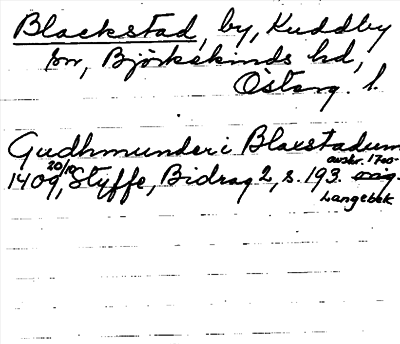 Blackstad, by, Kuddby
sn, Björkekinds hd,
Österg. l.
Gudhmunder i Blaxstadum
20/10 avskr. 1700-
1409, Styffe, Bidrag 2, s. 193. orig.
Langebek